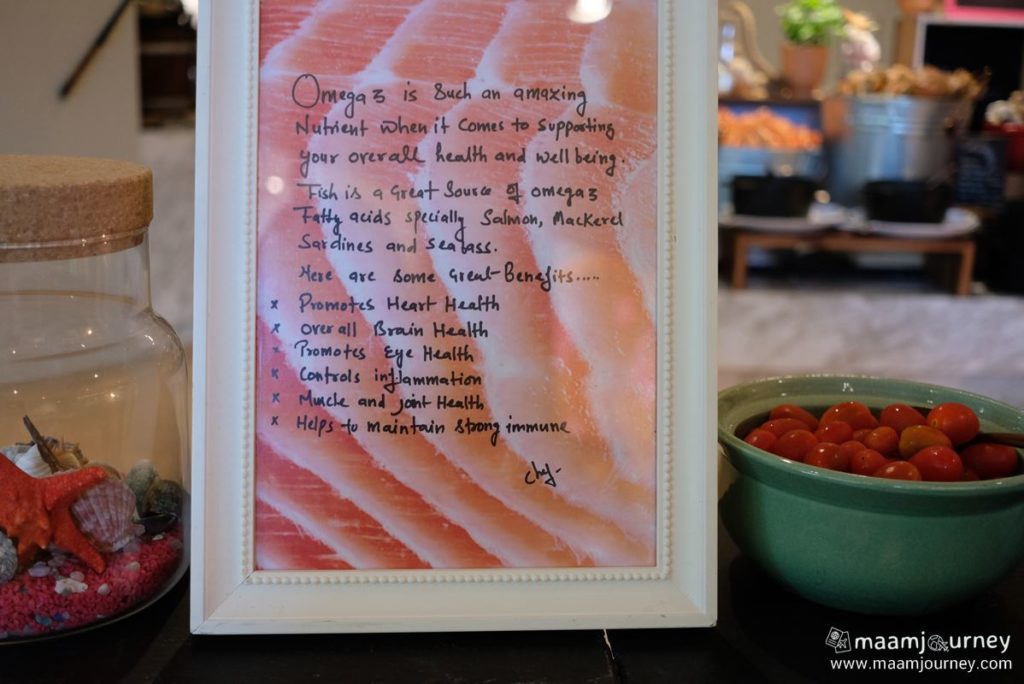 Omega 3 is Such an amazing
Nutrient when it comes to supporting
your overall health and well being.
Fish is a Great Source of omega 3
Fatty acids specially Salmon, Mackerel
Sardines and seabass.
Here are some Great Benefits.....
x Promotes Heart Health
x Overall Brain Health
x Promotes Eye Health
x Controls inflammation
x Muscle and joint Health
x Helps to maintain strong immune
Chef-
maamjourney
www.maamjourney.com